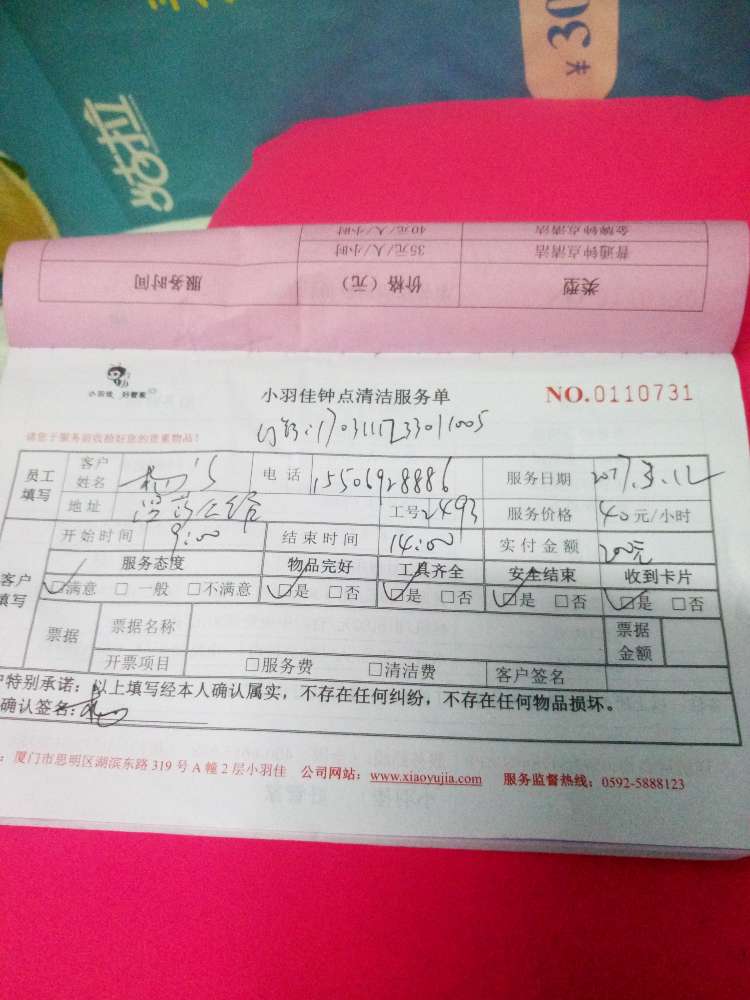 咕拉
30
类型 价格（元） 服务时间
普通钟点清洁 35元/人/小时
金牌钟点清洁 40元/人/小时
小羽佳 好管家
小羽佳钟点清洁服务单
NO.0110731
请您于服务前收拾好您的贵重物品！
员工填写 客户姓名 电话 15506928886 服务日期 2017.3.12
地址 工号 2493 服务价格 40元/小时
开始时间 9:00 结束时间 14:00 实付金额 200元
客户填写 服务态度 物品完好 工具齐全 安全结束 收到卡片
☑满意 □一般 □不满意 ☑是 □否 ☑是 □否 ☑是 □否 ☑是 □否
票据 票据名称 票据金额
开票项目 □服务费 □清洁费 客户签名
户特别承诺：以上填写经本人确认属实，不存在任何纠纷，不存在任何物品损坏。
确认签名：
：厦门市思明区湖滨东路 319 号 A 幢 2 层小羽佳 公司网站：www.xiaoyujia.com 服务监督热线：0592-5888123